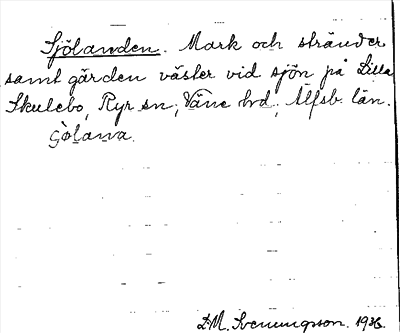 Sjölanden. Mark och stränder
samt gärden väster vid sjön på Lilla
Skulebo, Ryr sn; Väne hd; Älfsb. län.
Sò̀lana.
D.M. Svenungsson. 1936.